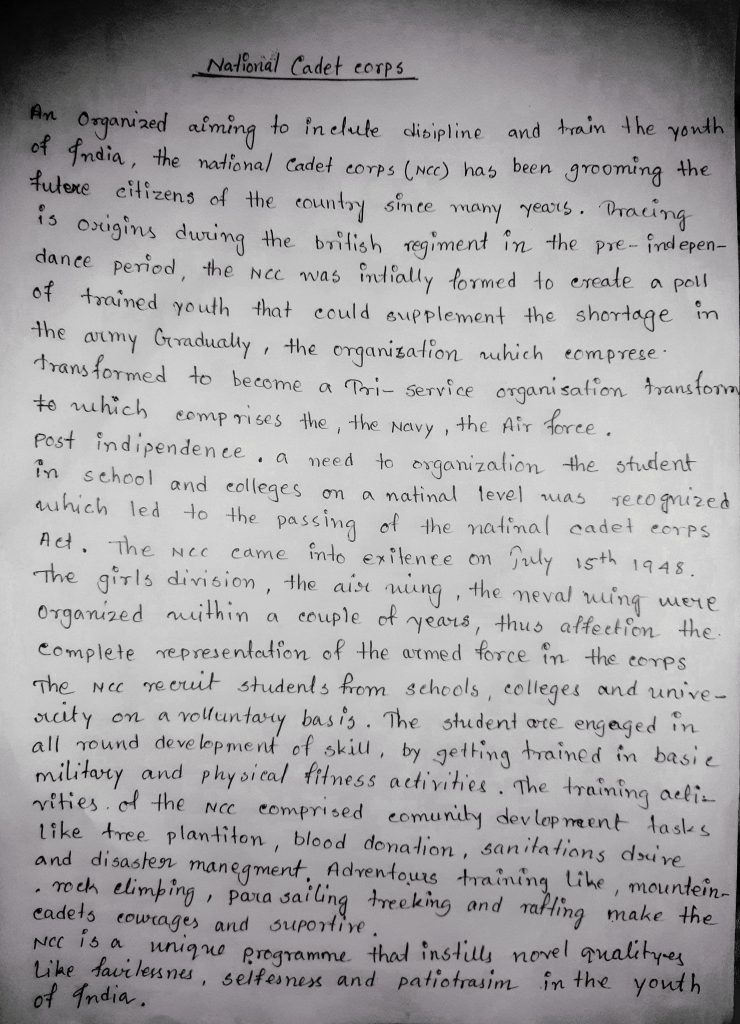 National Cadet corps
An Organized aiming to inclute disipline and train the youth
of India, the national Cadet corps (NCC) has been grooming the
futere citizens of the country since many years. Bracing
is origins during the british regiment in the pre-indepen-
dance period, the NCC was intially formed to create a poll
of trained youth that could supplement the shortage in
the army Gradually, the organization which comprese.
transformed to become a Tri-service organisation transform
to which comprises the, the Navy, the Air force.
Post indipendence. a need to organization the student
in school and colleges on a natinal level was recognized
which led to the passing of the natinal cadet corps
Act. The NCC came into exitence on July 15th 1948.
The girls division, the air wing, the neval wing were
Organized within a couple of years, thus affection the.
complete representation of the armed force in the corps
The NCC recruit students from schools, colleges and unive-
rcity on a volluntary basis. The student are engaged in
all round development of skill, by getting trained in basic
military and physical fitness activities. The training acti-
vities. of the NCC comprised comunity devlopment tasks
like tree plantiton, blood donation, sanitations drive
and disaster manegment. Adventours training like, mountein-
. rock climping, para sailing treeking and rafting make the
cadets courages and suportive.
NCC is a unique programme that instills novel qualityes
Like favilessnes, selfesness and patiotrasim in the youth
of India.